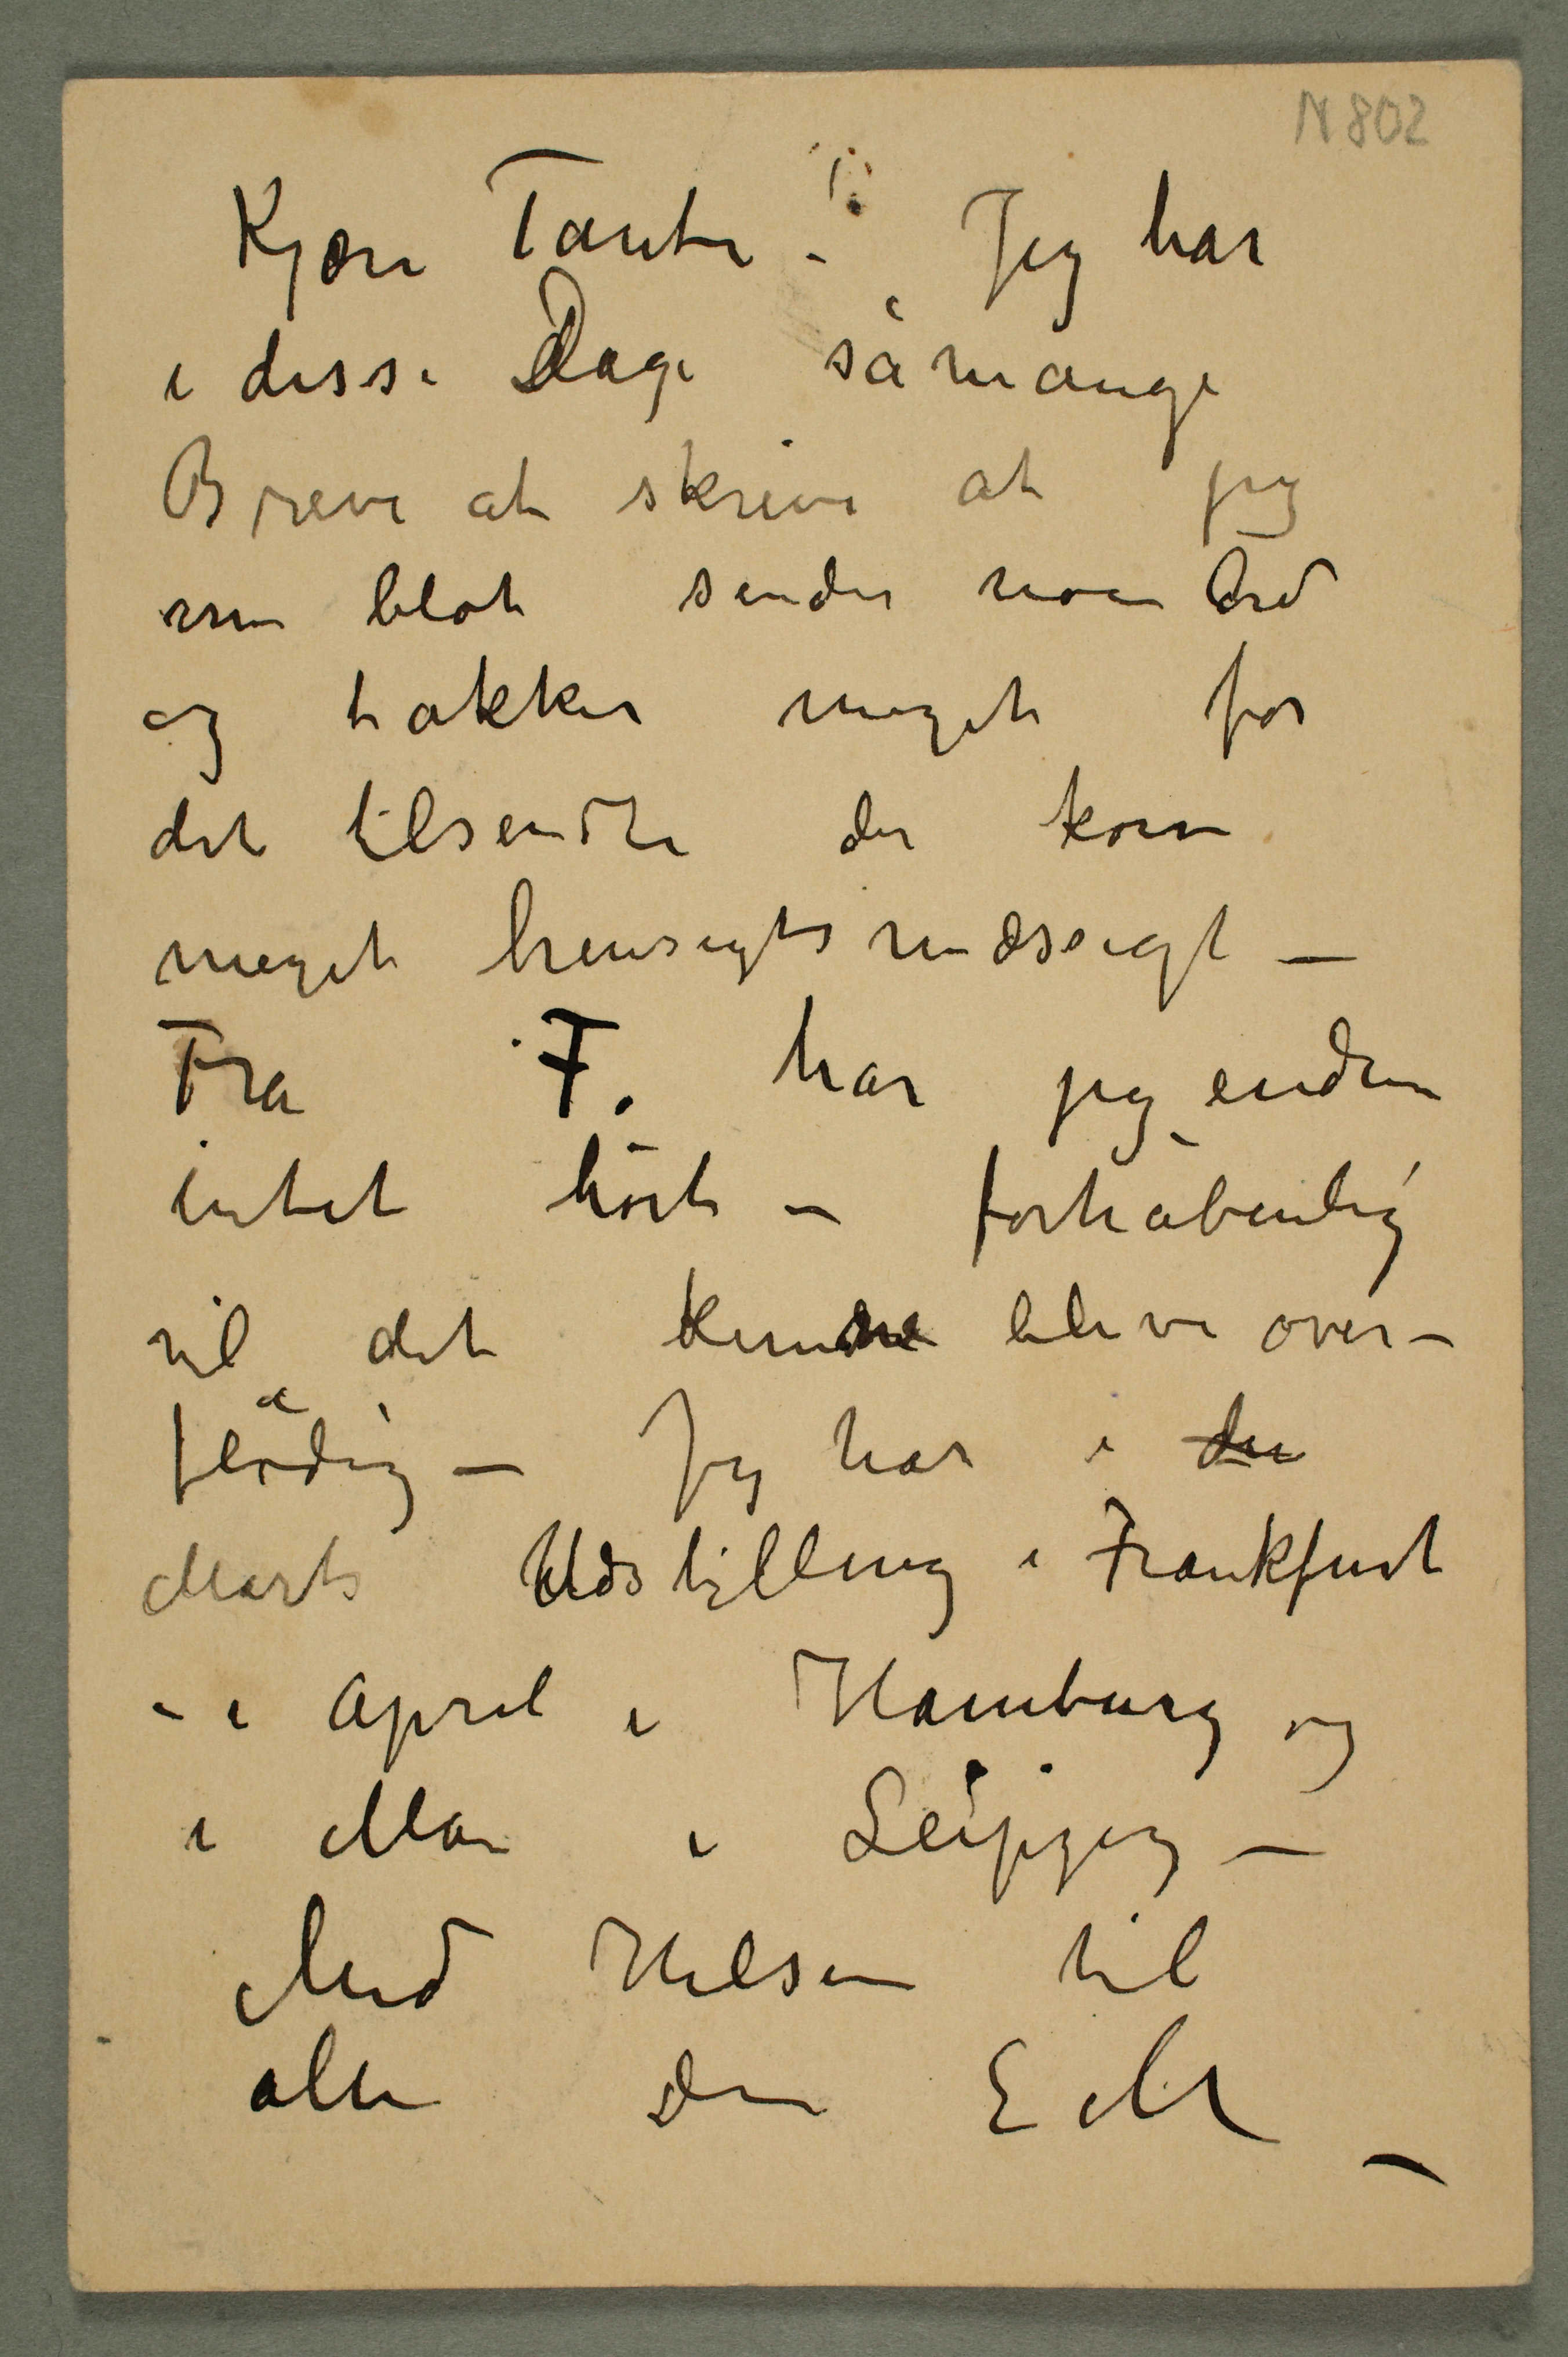 N 802
Kjære Tante – Jeg har
i disse Dage så mange
Breve at skrive at jeg
nu blot sender noen Ord
og takker meget for
det tilsendte der kom
meget hensigtsmæssigt –
Fra F. har jeg endnu
intet hört – forhåbentlig
vil det kunne blive over-
flödig – Jeg har i den
Marts Udstilling i Frankfurt
– i April i Hamburg og
i Mai i Leipzig –
Med Hilsen til
alle Din E M –